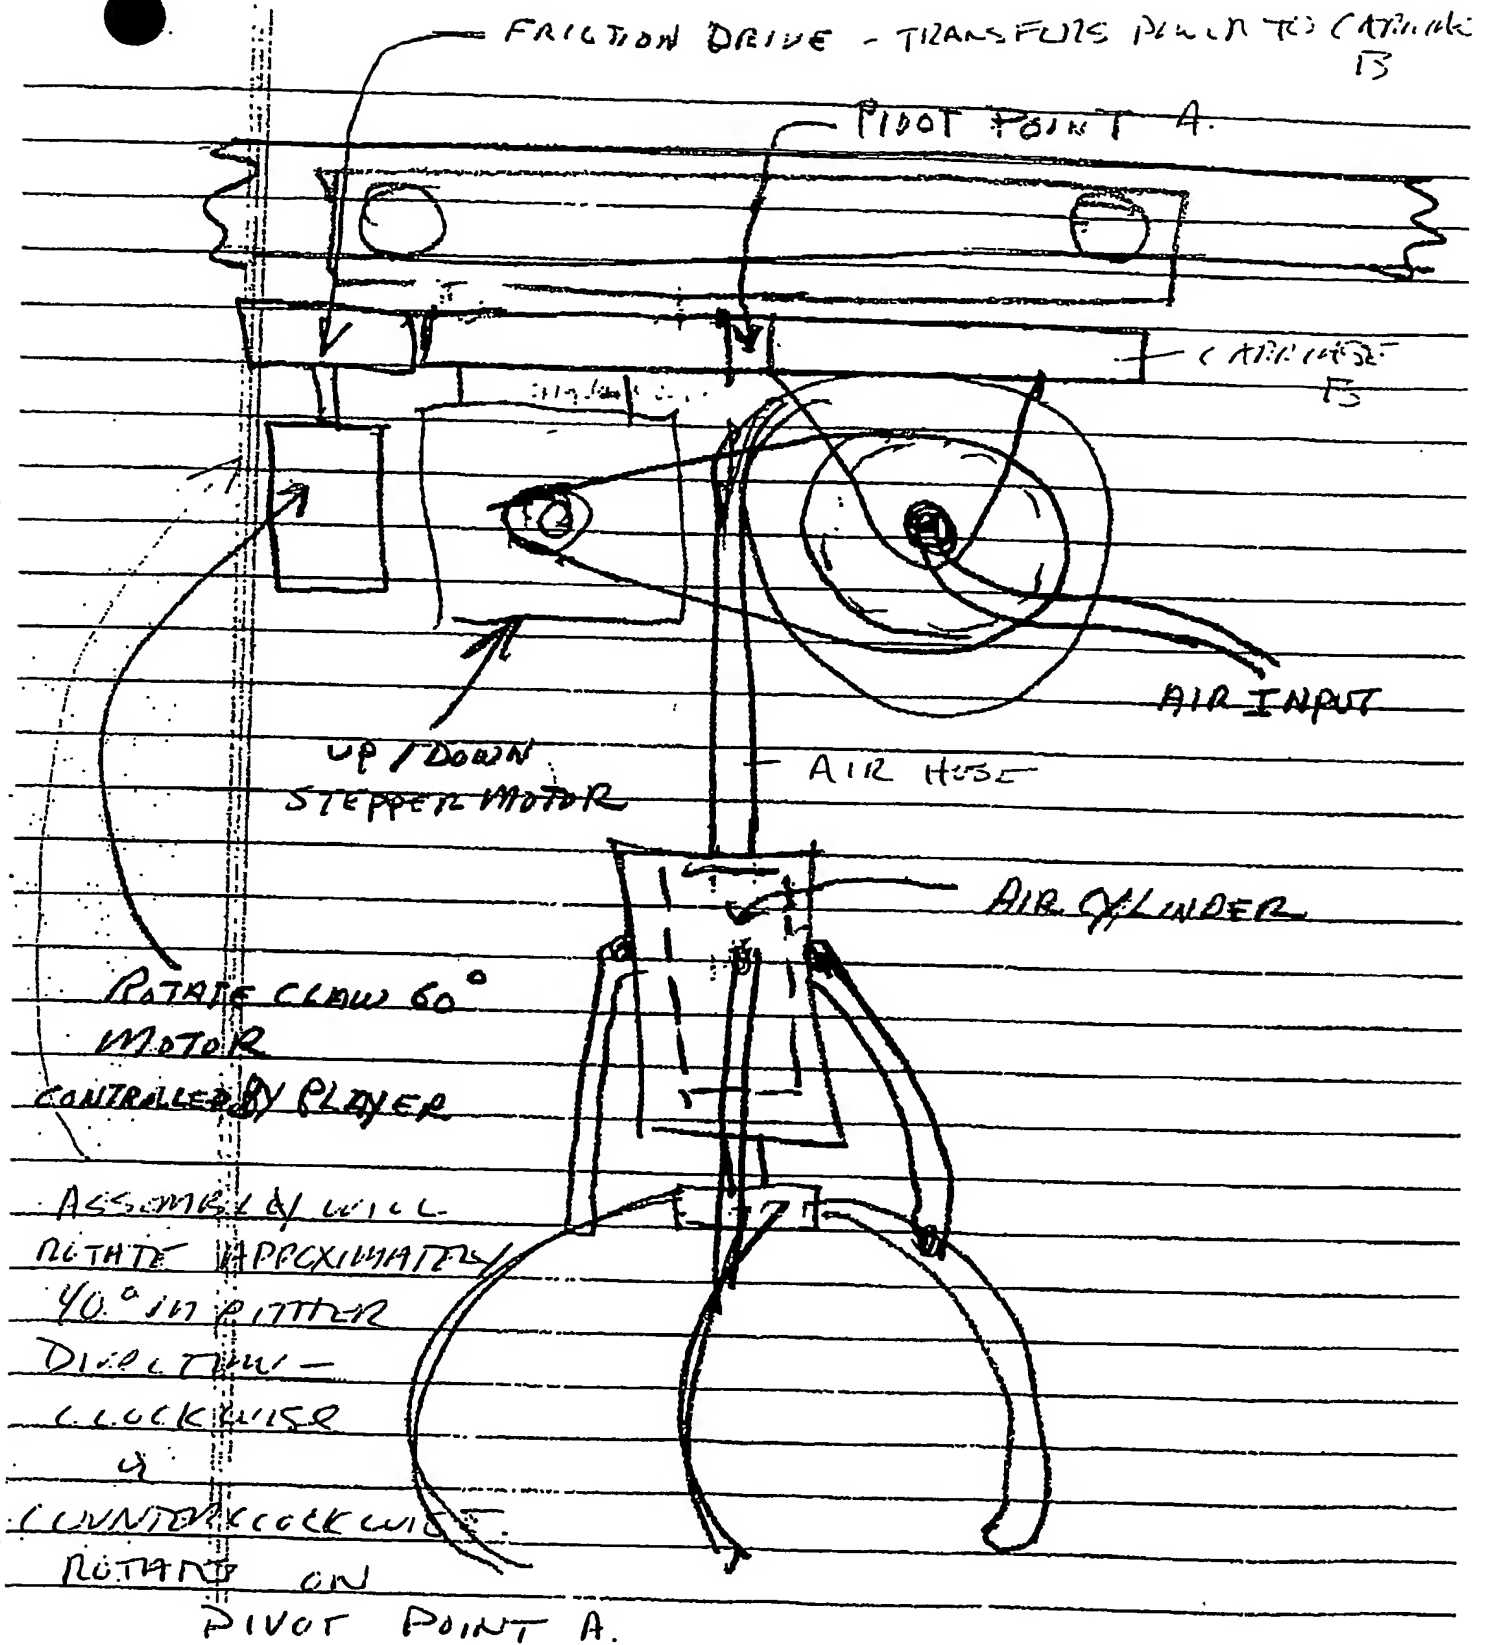 FRICTION DRIVE - TRANSFERS POWER TO CARRIAGE
B
PIVOT POINT A.
CARRIAGE
B
AIR INPUT
UP / DOWN
STEPPER MOTOR
AIR HOSE
AIR CYLINDER
ROTATE CLAW 60°
MOTOR
CONTROLLED BY PLAYER
ASSEMBLY WILL
ROTATE APPROXIMATELY
40° IN EITHER
DIRECTION -
CLOCKWISE
or
COUNTER CLOCKWISE
ON
PIVOT POINT A.